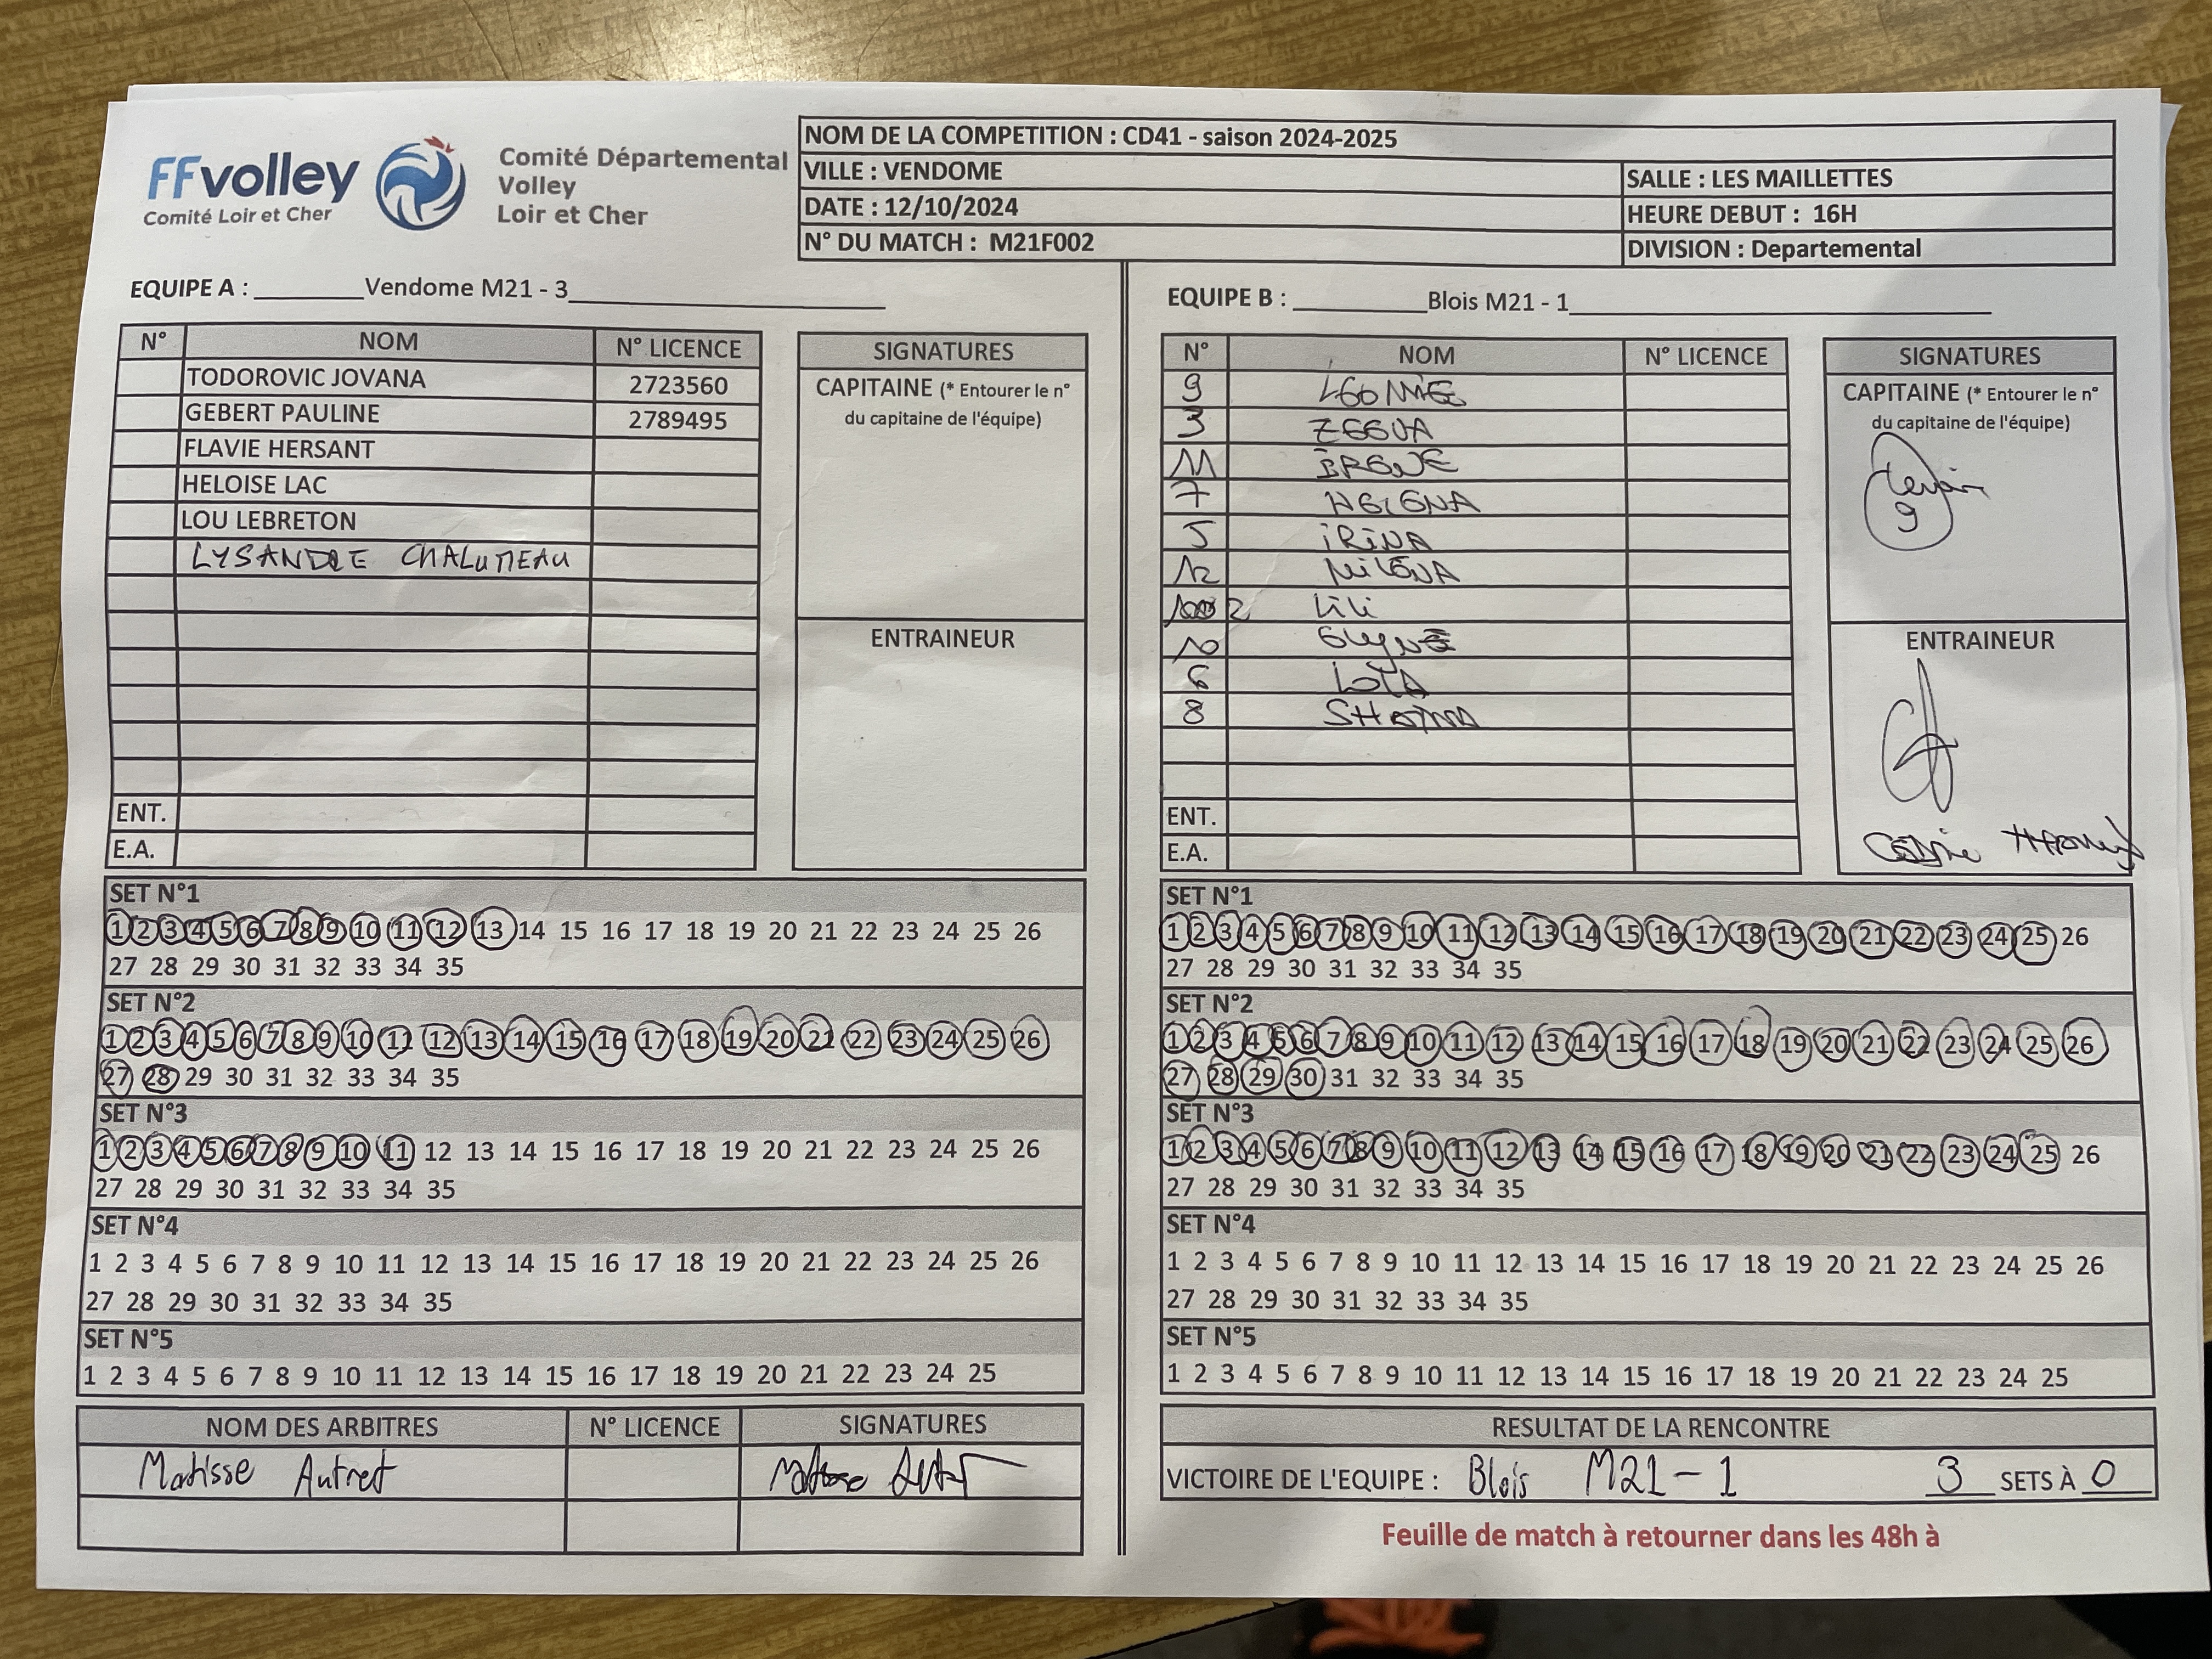 FFvolley
Comité Loir et Cher
Comité Départemental
Volley
Loir et Cher
NOM DE LA COMPETITION : CD41 - saison 2024-2025
VILLE : VENDOME
SALLE : LES MAILLETTES
DATE : 12/10/2024
HEURE DEBUT : 16H
N° DU MATCH : M21F002
DIVISION : Departemental
EQUIPE A : ________Vendome M21 - 3________
N° NOM N° LICENCE
TODOROVIC JOVANA 2723560
GEBERT PAULINE 2789495
FLAVIE HERSANT
HELOISE LAC
LOU LEBRETON
LYSANDRE CHALUMEAU
ENT.
E.A.
SIGNATURES
CAPITAINE (* Entourer le n°
du capitaine de l'équipe)
ENTRAINEUR
SET N°1
1 2 3 4 5 6 7 8 9 10 11 12 13 14 15 16 17 18 19 20 21 22 23 24 25 26
27 28 29 30 31 32 33 34 35
SET N°2
1 2 3 4 5 6 7 8 9 10 11 12 13 14 15 16 17 18 19 20 21 22 23 24 25 26
27 28 29 30 31 32 33 34 35
SET N°3
1 2 3 4 5 6 7 8 9 10 11 12 13 14 15 16 17 18 19 20 21 22 23 24 25 26
27 28 29 30 31 32 33 34 35
SET N°4
1 2 3 4 5 6 7 8 9 10 11 12 13 14 15 16 17 18 19 20 21 22 23 24 25 26
27 28 29 30 31 32 33 34 35
SET N°5
1 2 3 4 5 6 7 8 9 10 11 12 13 14 15 16 17 18 19 20 21 22 23 24 25
NOM DES ARBITRES N° LICENCE SIGNATURES
Matisse Autret
EQUIPE B : ________Blois M21 - 1________
N° NOM N° LICENCE
9 LEONIE
3
11 IRENE
7 HELENA
5 iRiNA
12 MILENA
2 Lili
10
6
8
ENT.
E.A.
SIGNATURES
CAPITAINE (* Entourer le n°
du capitaine de l'équipe)
9
ENTRAINEUR
SET N°1
1 2 3 4 5 6 7 8 9 10 11 12 13 14 15 16 17 18 19 20 21 22 23 24 25 26
27 28 29 30 31 32 33 34 35
SET N°2
1 2 3 4 5 6 7 8 9 10 11 12 13 14 15 16 17 18 19 20 21 22 23 24 25 26
27 28 29 30 31 32 33 34 35
SET N°3
1 2 3 4 5 6 7 8 9 10 11 12 13 14 15 16 17 18 19 20 21 22 23 24 25 26
27 28 29 30 31 32 33 34 35
SET N°4
1 2 3 4 5 6 7 8 9 10 11 12 13 14 15 16 17 18 19 20 21 22 23 24 25 26
27 28 29 30 31 32 33 34 35
SET N°5
1 2 3 4 5 6 7 8 9 10 11 12 13 14 15 16 17 18 19 20 21 22 23 24 25
RESULTAT DE LA RENCONTRE
VICTOIRE DE L'EQUIPE : Blois M21-1 3 SETS À 0
Feuille de match à retourner dans les 48h à